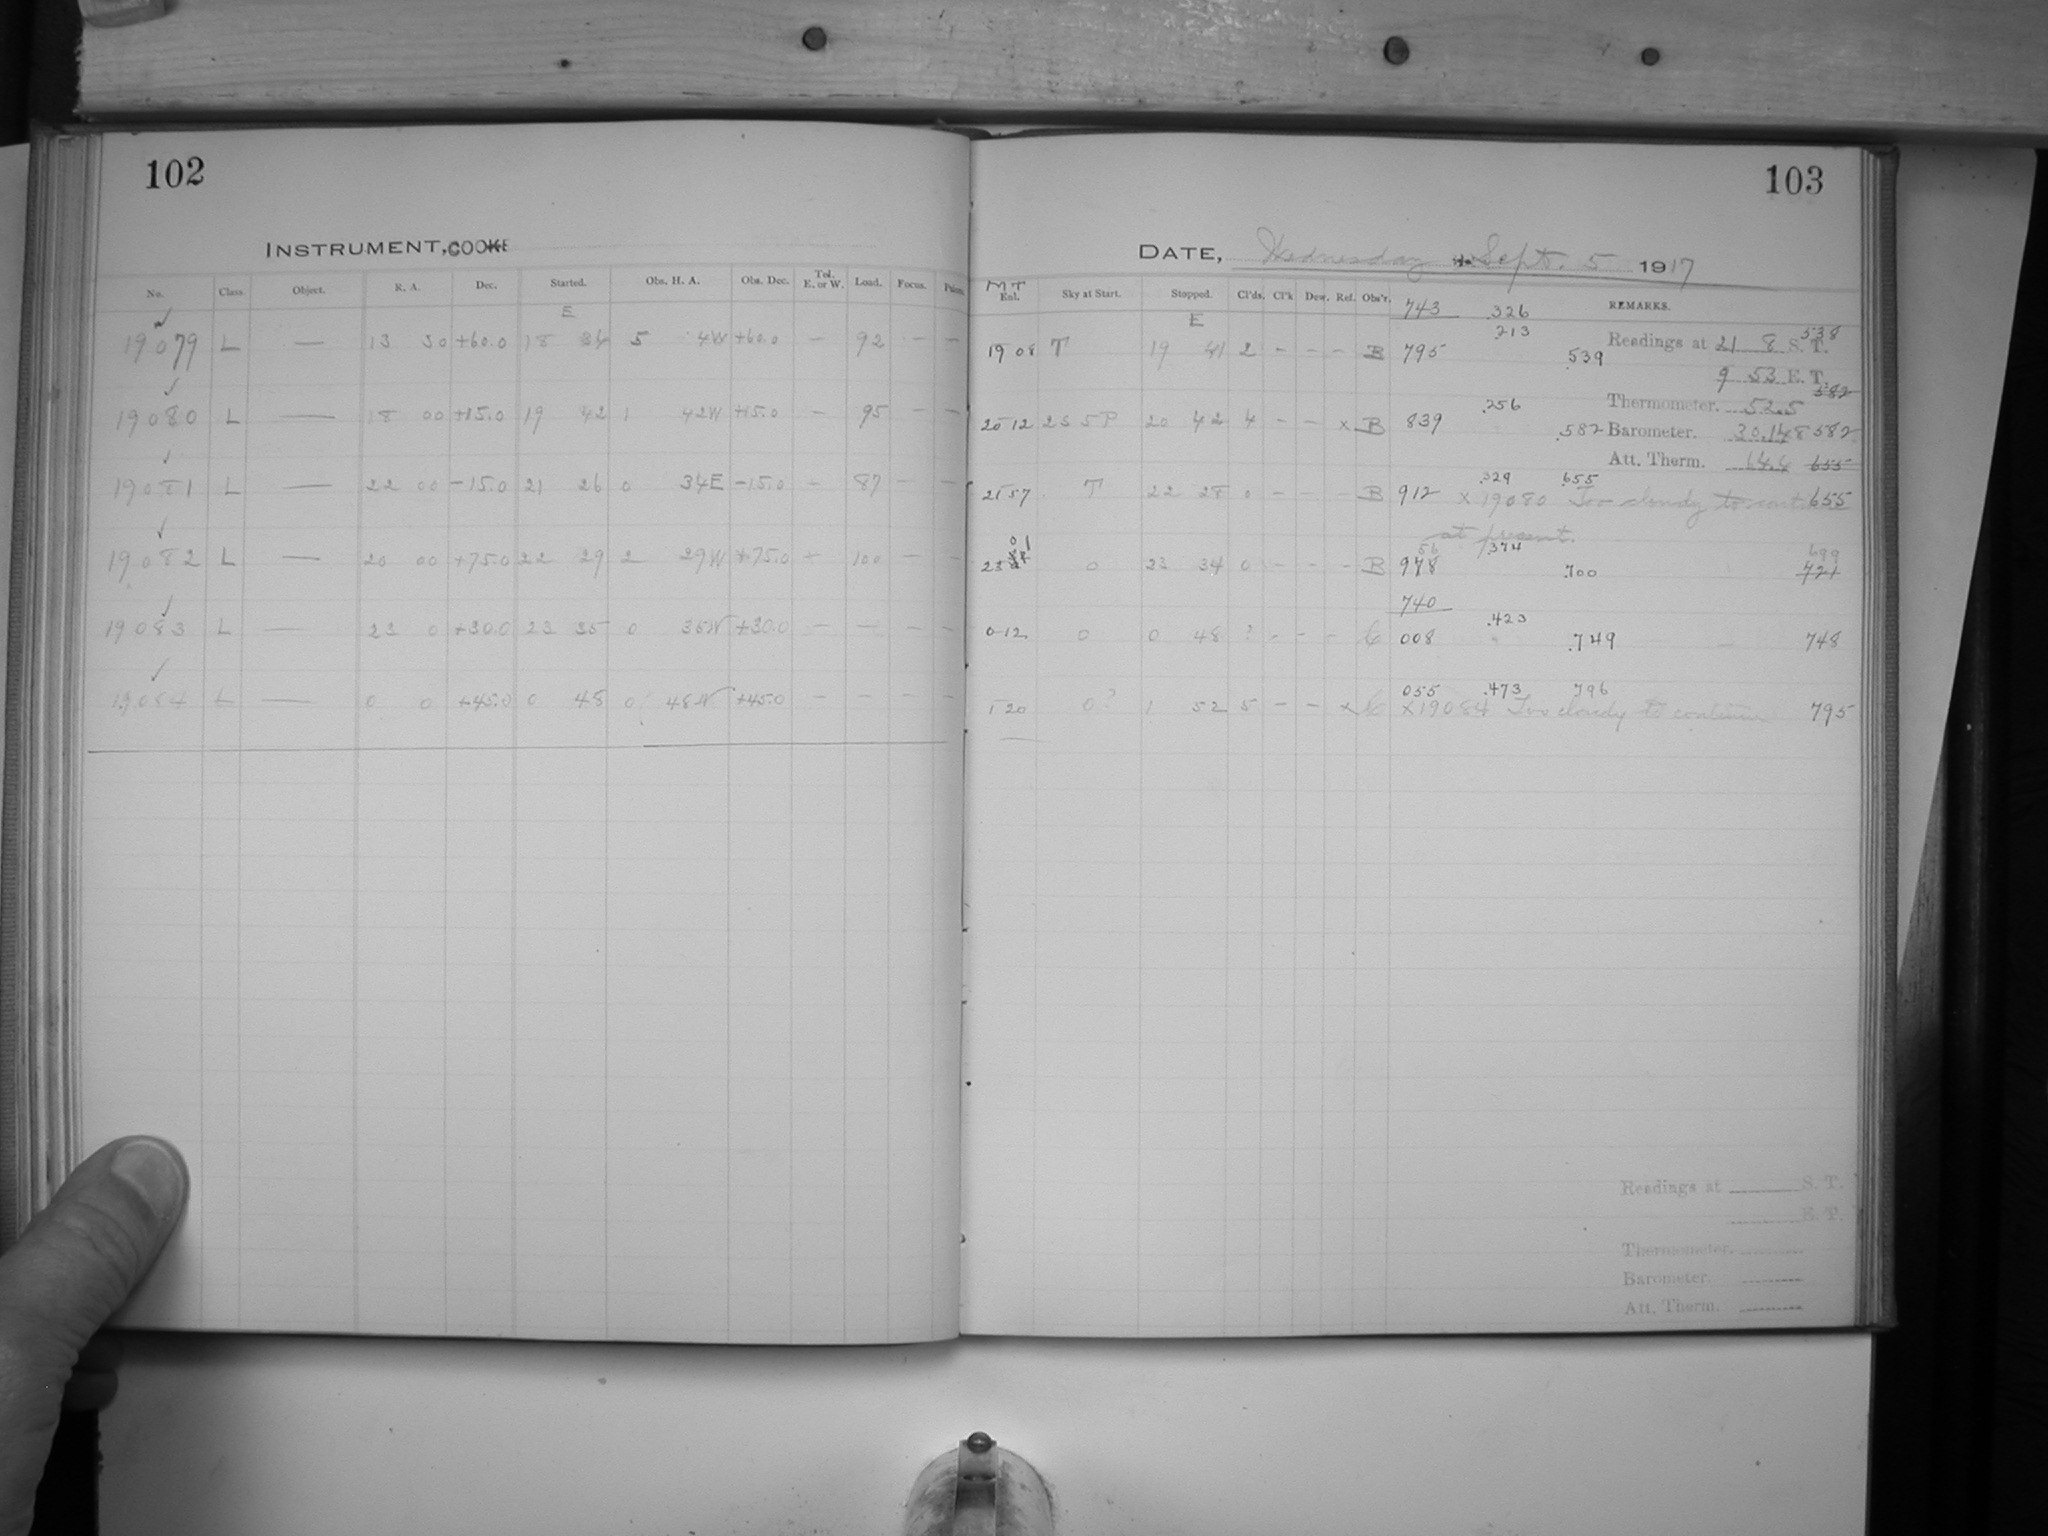 102
INSTRUMENT, COOKE
No. Class. Object. R. A. Dec. Started. Obs. H. A. Obs. Dec. Tel. E. or W. Load. Focus.
E
19079 L — 13 30 +60.0 18 34 5 4W +60.0 — 92 — —
19080 L — 18 00 +15.0 19 42 1 42W +15.0 — 95 — —
19081 L — 22 00 -15.0 21 26 0 34E -15.0 — 87 — —
19082 L — 20 00 +75.0 22 29 2 29W +75.0 — 100 — —
19083 L — 23 0 +30.0 23 35 0 35W +30.0 — — — —
19084 L — 0 0 +45.0 0 48 0 48W +45.0 — — — —
103
DATE, Wednesday Sept. 5 1917
MT
Enl. Sky at Start. Stopped. Cl'ds. Cl'k Dew. Ref. Obs'r. 743 .326 REMARKS.
E
.213 538
19 08 T 19 41 2 - - - B 795 .539 Readings at 21 8 S. T.
9 53 E. T.
582
.256 Thermometer. 52.5
20 12 2S 5P 20 42 4 - - x B 839 .582 Barometer. 30.148 582
Att. Therm. 64.4 655
.329 .655
21 57 T 22 28 0 - - - B 912 x 19080 Too cloudy to continue 655
at present.
01 56 .374 699
23 0 23 34 0 - - - B 978 .700 721
740
.423
0 12 0 0 48 ? - - - C 008 .749 748
055 .473 796
1 20 0? 1 52 5 - - x C x19084 Too cloudy to continue 795
Readings at S. T.
E. T.
Thermometer.
Barometer.
Att. Therm.